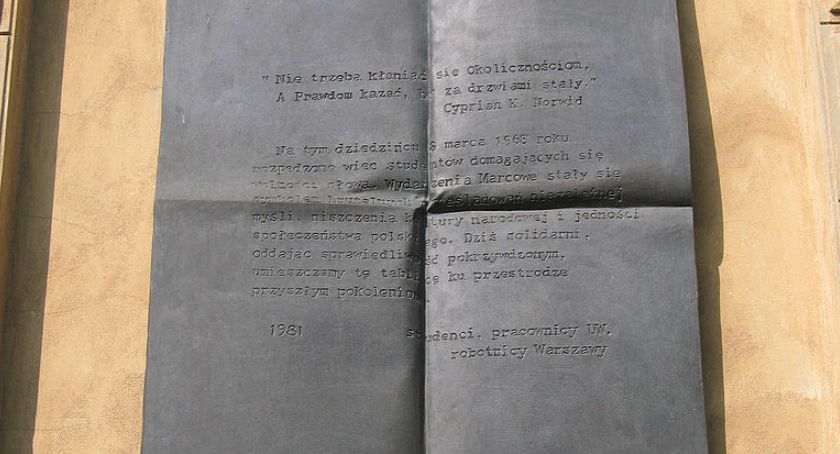 "Nie trzeba kłaniać się Okolicznościom,
A Prawdom kazać, by za drzwiami stały."
Cyprian K. Norwid
Na tym dziedzińcu 8 marca 1968 roku
rozpędzono wiec studentów domagających się
wolności słowa. Wydarzenia Marcowe stały się
symbolem brutalnych prześladowań niezależnej
myśli, niszczenia kultury narodowej i jedności
społeczeństwa polskiego. Dziś solidarni,
oddając sprawiedliwość pokrzywdzonym,
umieszczamy tę tablicę ku przestrodze
przyszłym pokoleniom.
1981 studenci, pracownicy UW,
robotnicy Warszawy